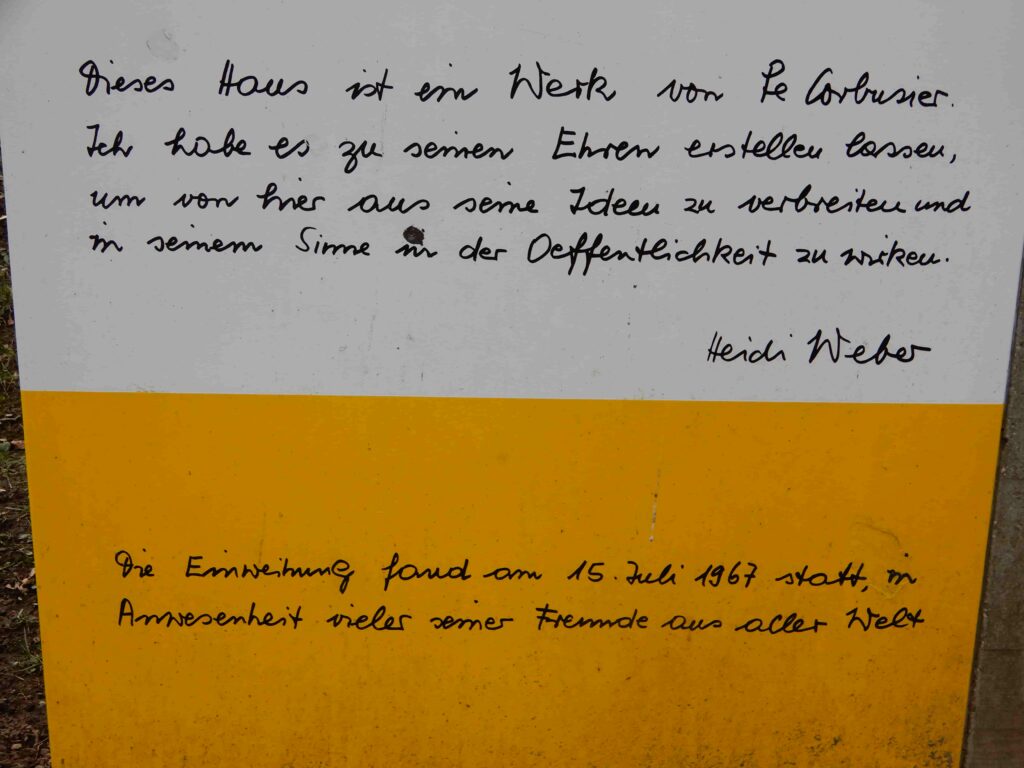 Dieses Haus ist ein Werk von Le Corbusier.
Ich habe es zu seinen Ehren erstellen lassen,
um von hier aus seine Ideen zu verbreiten und
in seinem Sinne in der Oeffentlichkeit zu wirken.
Heidi Weber
Die Einweihung fand am 15. Juli 1967 statt, in
Anwesenheit vieler seiner Freunde aus aller Welt